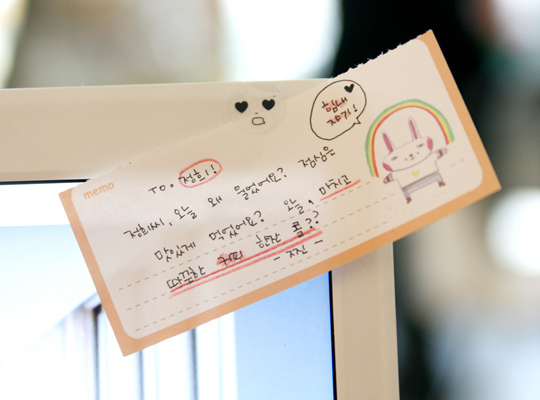 memo
힘내
자기!
TO. 정희!
정희씨, 오늘 왜 울었어요? 점심은
맛있게 먹었어요? 오늘, 마치고
따뜻한 커피 한잔 콜??
- 지진 -